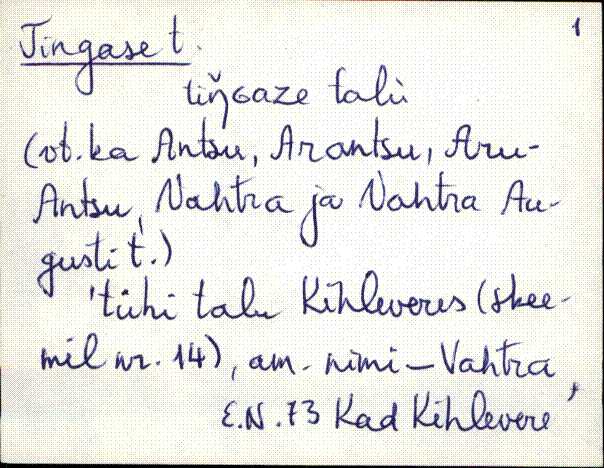 1
Tingase t.
tiŋ̆ɢaze talù
(vt. ka Antsu, Arantsu, Aru-
Antsu, Vahtra ja Vahtra Au-
gusti t.)
'tühi talu Kihleveres (skee-
mil nr. 14), am. nimi – Vahtra'
E.N. 73 Kad Kihlevere